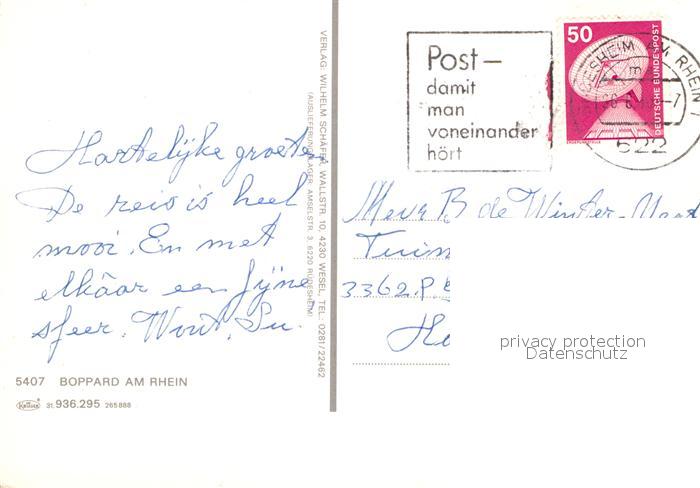 Post—
damit
man
voneinander
hört
50
DEUTSCHE BUNDESPOST
AM RHEIN 1
622
Hartelijke groeten
De reis is heel
mooi. En met
elkaar een fijne
sfeer. Wout, Su.
VERLAG: WILHELM SCHÄFER, WALLSTR. 10, 4230 WESEL, TEL. 0281/22462
(AUSLIEFERUNGSLAGER: AMSELSTR. 3, 6220 RÜDESHEIM)
Mevr B de Winter-
Tuin
3362 P
Ho
privacy protection
Datenschutz
5407 BOPPARD AM RHEIN
Krüger 3t. 936.295 265888